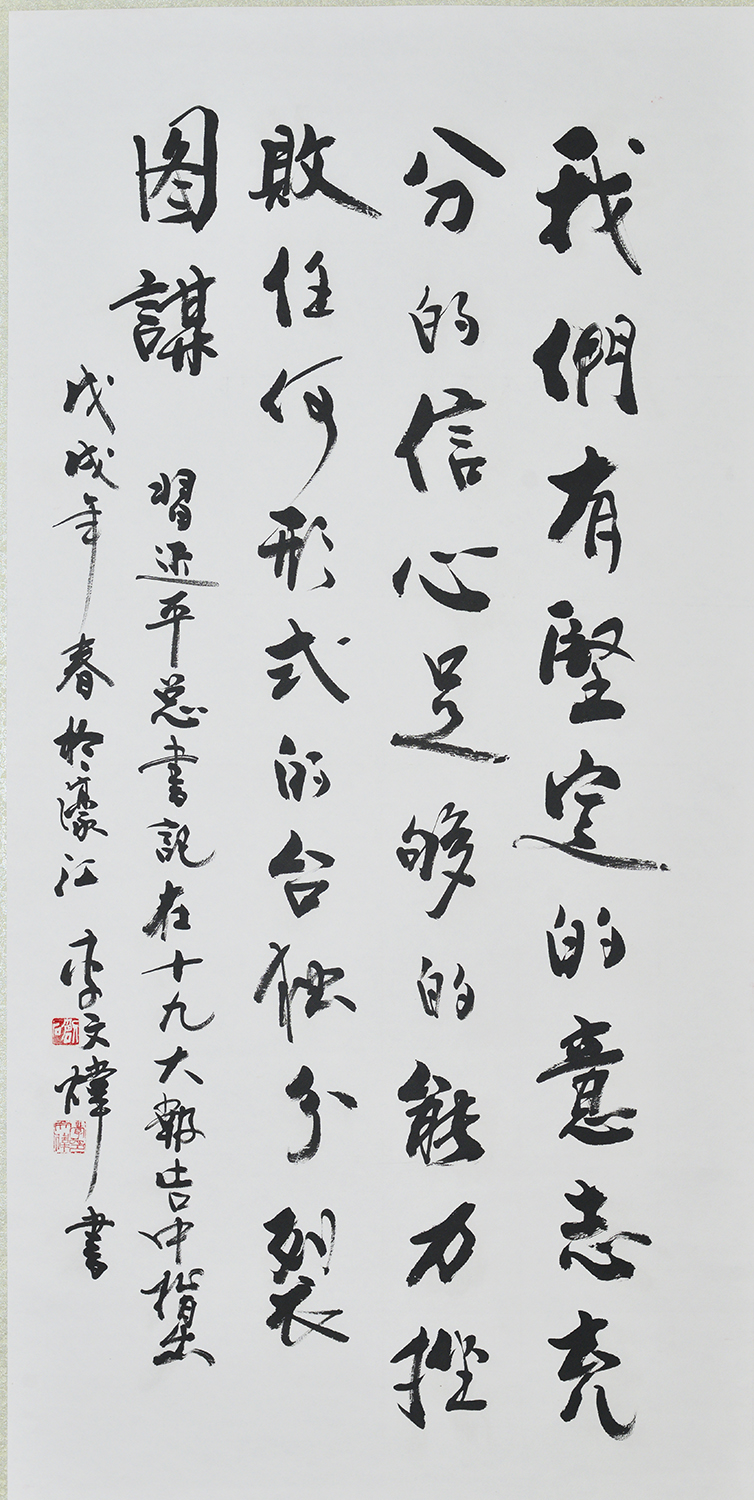 我們有堅定的意志充
分的信心足够的能力挫
敗任何形式的台独分裂
图謀
習近平总書記在十九大報告中指出
戊戌年春於濠江李文煒書